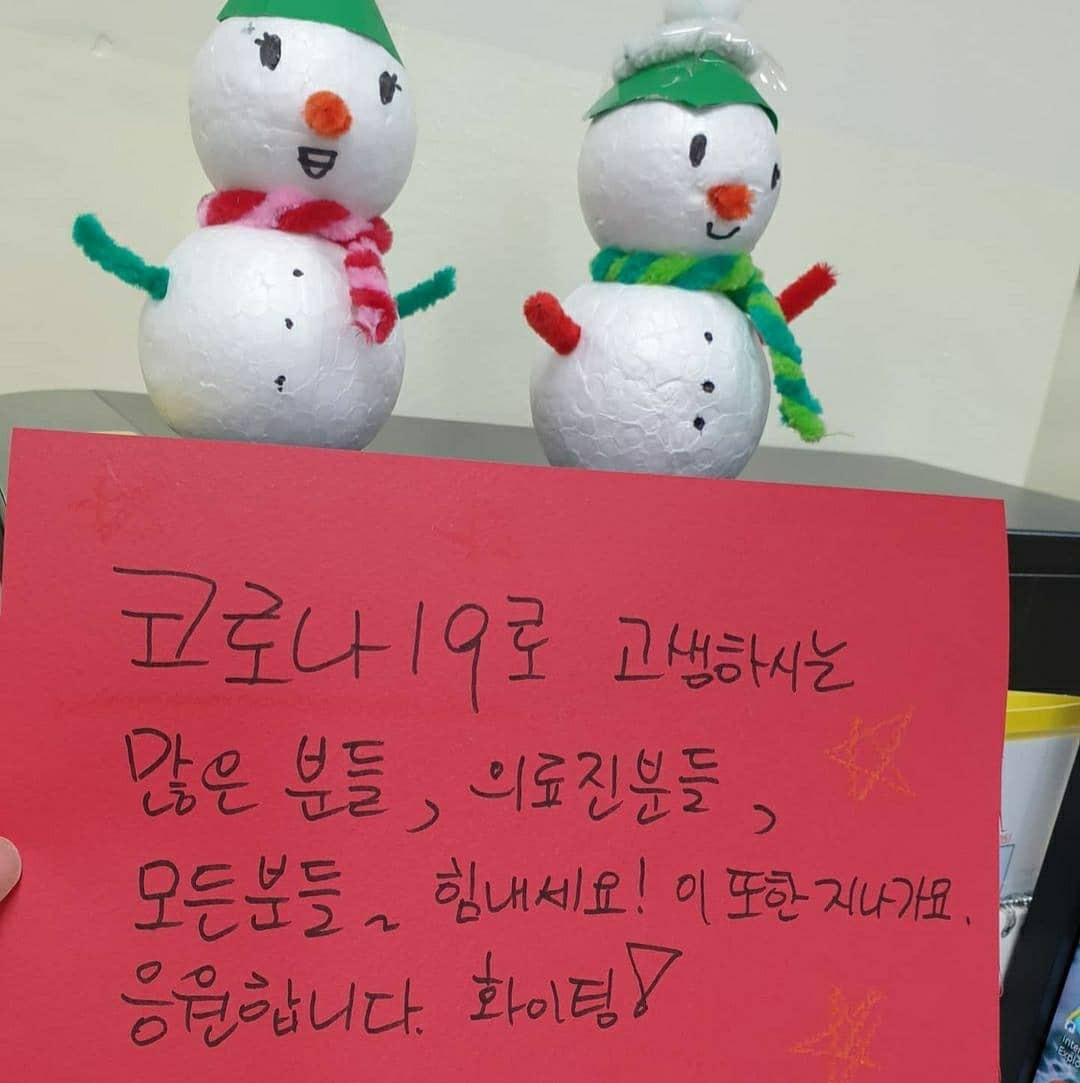 코로나19로 고생하시는
많은 분들, 의료진분들,
모든분들~ 힘내세요! 이 또한 지나가요.
응원합니다. 화이팅!